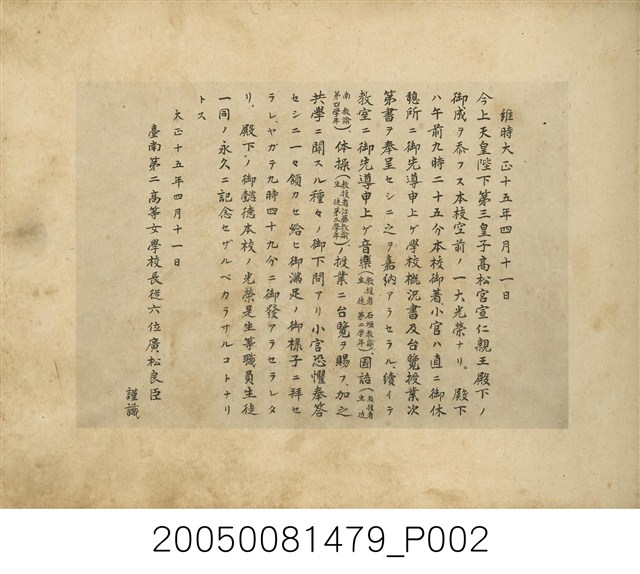 維時大正十五年四月十一日
今上天皇陛下第三皇子高松宮宣仁親王殿下ノ
御成ヲ忝フス本校空前ノ一大光榮ナリ。殿下
ハ午前九時二十五分本校御著小官ハ直ニ御休
憩所ニ御先導申上ゲ學校概況書及台覽授業次
第書ヲ奉呈セシニ之ヲ嘉納アラセラル、續イテ
教室ニ御先導申上ゲ音樂(教授者 石垣教諭、生徒 第二學年)國語(教授者 生徒
南 教諭、第四學年)、体操(教授者 教諭、生徒第三學年)ノ授業ニ台覽ヲ賜フ、加之
共學ニ關スル種々ノ御下問アリ小官恐懼奉答
セシニ一々領カセ給ヒ御滿足ノ御様子ニ拜セ
ラレ、ヤガテ九時四十九分ニ御發アラセラレタ
リ。殿下ノ御懿德本校ノ光榮是生等職員生徒
一同ノ永久ニ記念セザルベカラザルコトナリ
トス
大正十五年四月十一日
臺南第二高等女學校長從六位廣松良臣
謹識
20050081479_P002